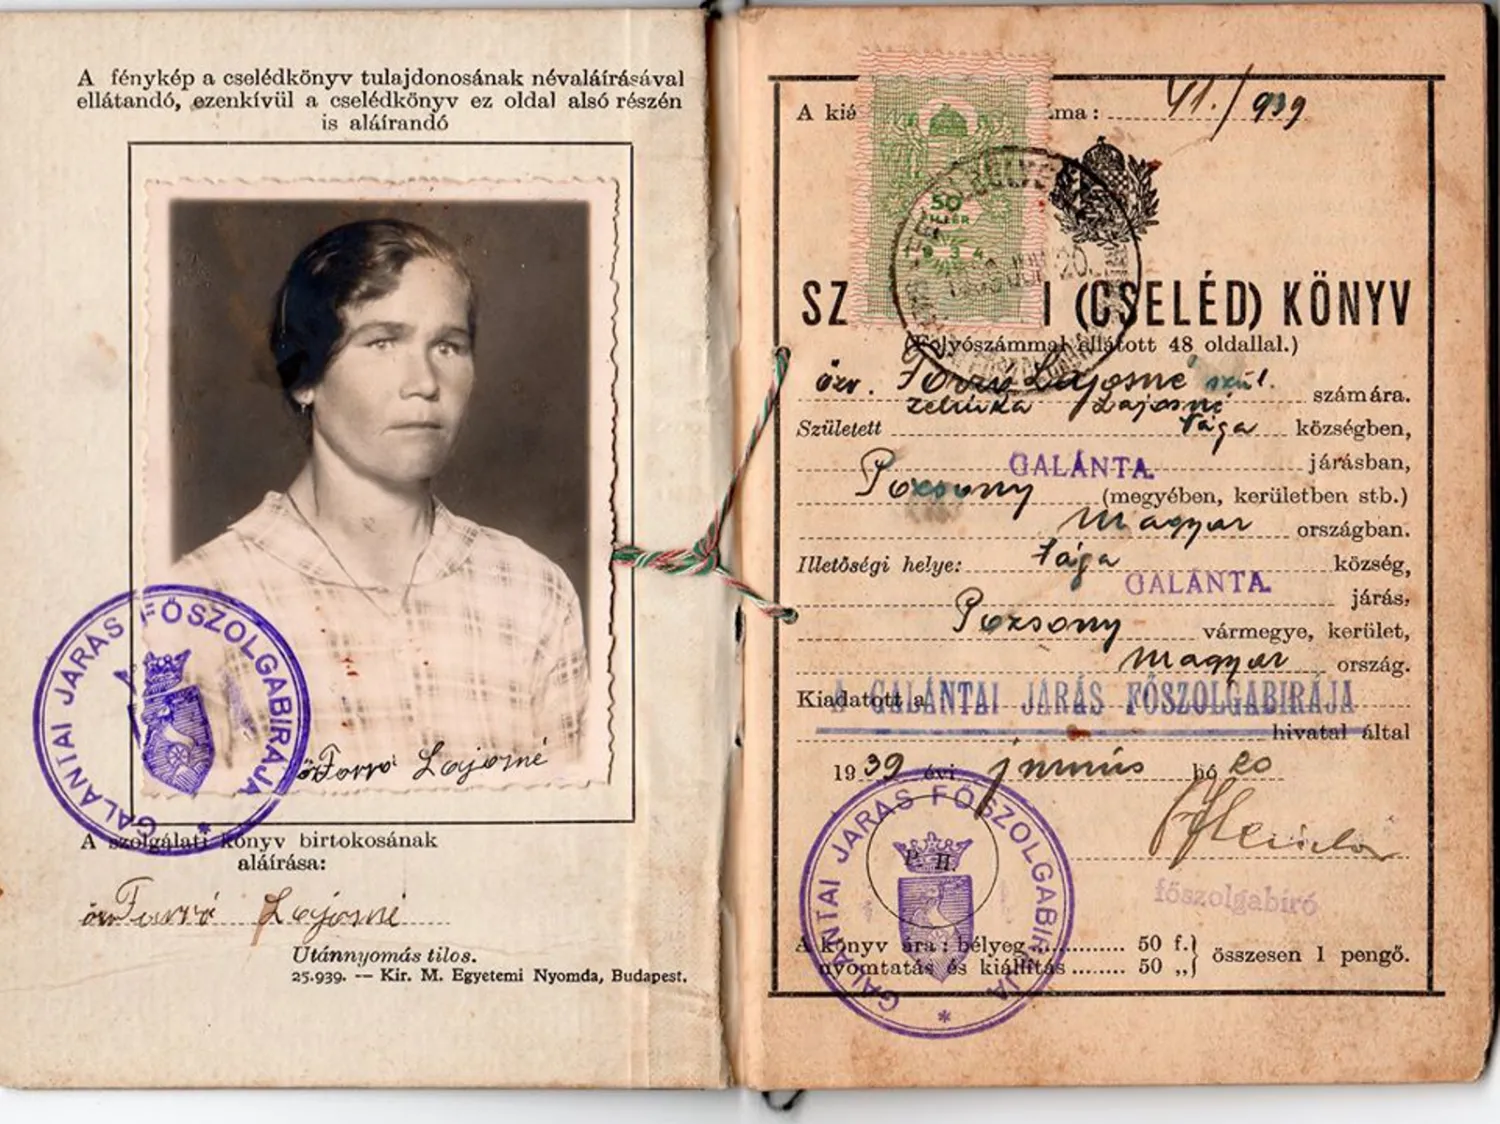 A fénykép a cselédkönyv tulajdonosának névaláírásával
ellátandó, ezenkívül a cselédkönyv ez oldal alsó részén
is aláírandó
GALÁNTAI JÁRÁS FŐSZOLGABIRÁJA
özv Forró Lajosné
A szolgálati könyv birtokosának
aláírása:
özv Forró Lajosné
Utánnyomás tilos.
25.939. — Kir. M. Egyetemi Nyomda, Budapest.
A kiá ma: 41./939
50
FILLÉR
1934
JUN 20.
SZ I (CSELÉD) KÖNYV
(Folyószámmal ellátott 48 oldallal.)
özv. Forró Lajosné szül.
Lajosné számára.
Született Tága községben,
GALÁNTA járásban,
Pozsony (megyében, kerületben stb.)
Magyar országban.
Illetőségi helye: Tága község,
GALÁNTA járás,
Pozsony vármegye, kerület,
Magyar ország.
Kiadatott a A GALÁNTAI JÁRÁS FŐSZOLGABIRÁJA
hivatal által
1939 évi junius hó 20
P. H.
GALÁNTAI JÁRÁS FŐSZOLGABIRÁJA
főszolgabiró
A könyv ára: bélyeg 50 f.
nyomtatás és kiállítás 50 „
összesen 1 pengő.